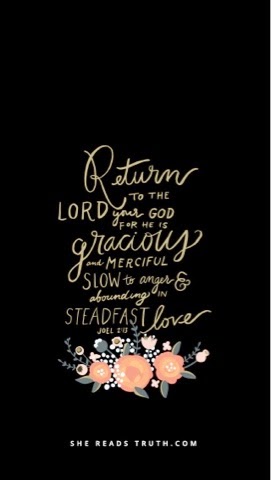 Return
TO THE
LORD your GOD
FOR HE IS
gracious
and MERCIFUL
SLOW to anger &
abounding IN
STEADFAST love
JOEL 2:13
SHE READS TRUTH.COM